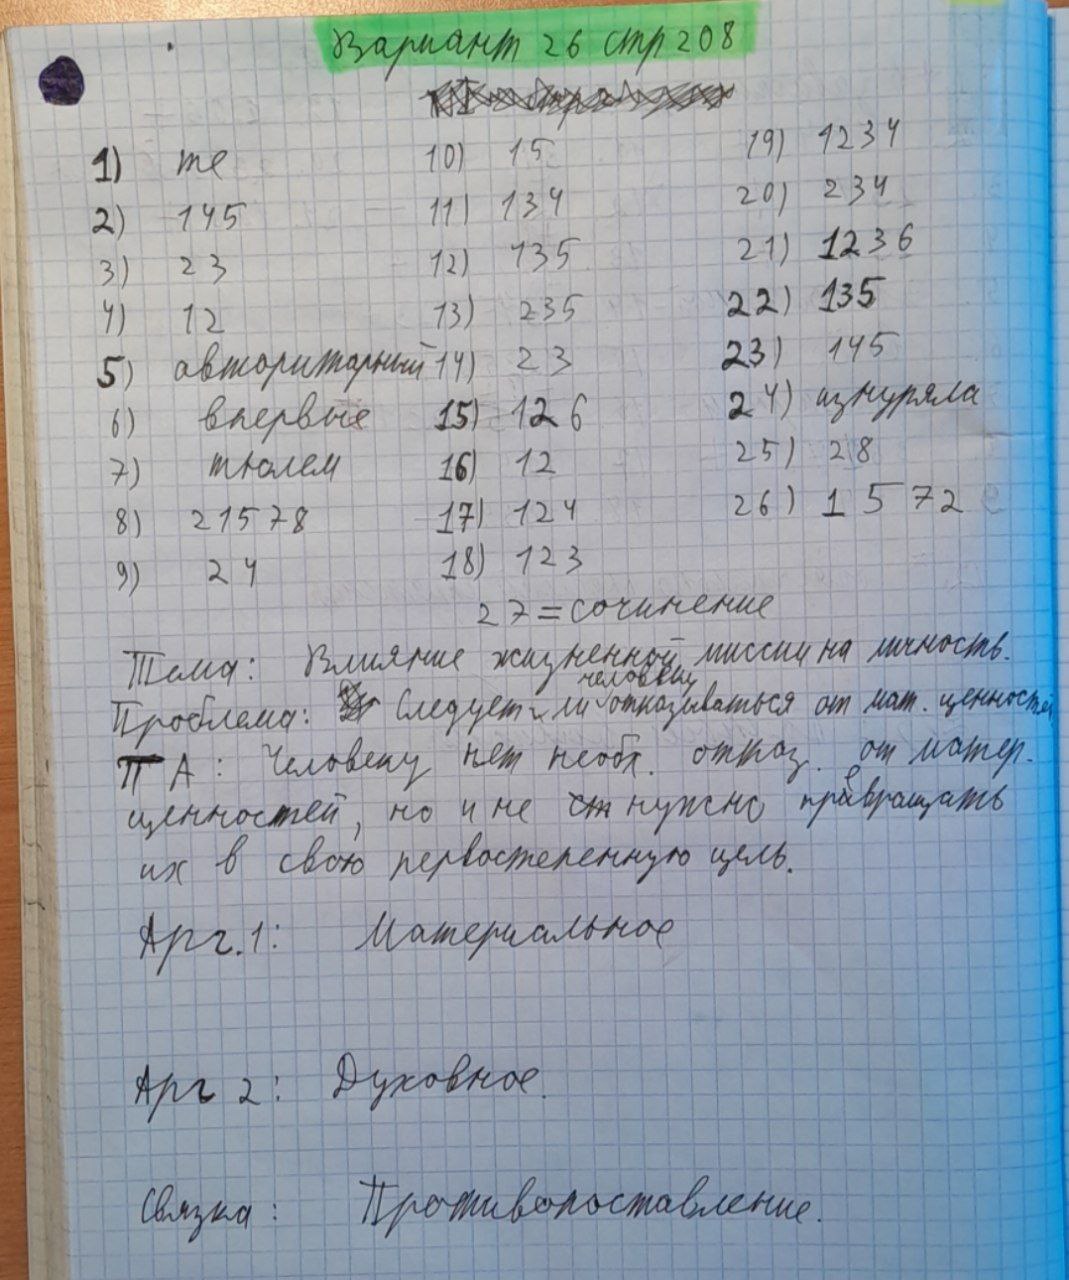 Вариант 26 стр 208
1) те
2) 145
3) 23
4) 12
5) авторитарный
6) впервые
7) тюлем
8) 21578
9) 24
10) 15
11) 134
12) 135
13) 235
14) 23
15) 126
16) 12
17) 124
18) 123
19) 1234
20) 234
21) 1236
22) 135
23) 145
24) изнуряла
25) 28
26) 1572
27 = сочинение
Тема: Влияние жизненной миссии на личность.
Проблема: Следует ли человеку отказываться от мат. ценностей
ПА: Человеку нет необх. отказ. от матер.
ценностей, но и не нужно превращать
их в свою первостепенную цель.
Арг. 1: Материальное
Арг 2: Духовное.
Связка: Противопоставление.